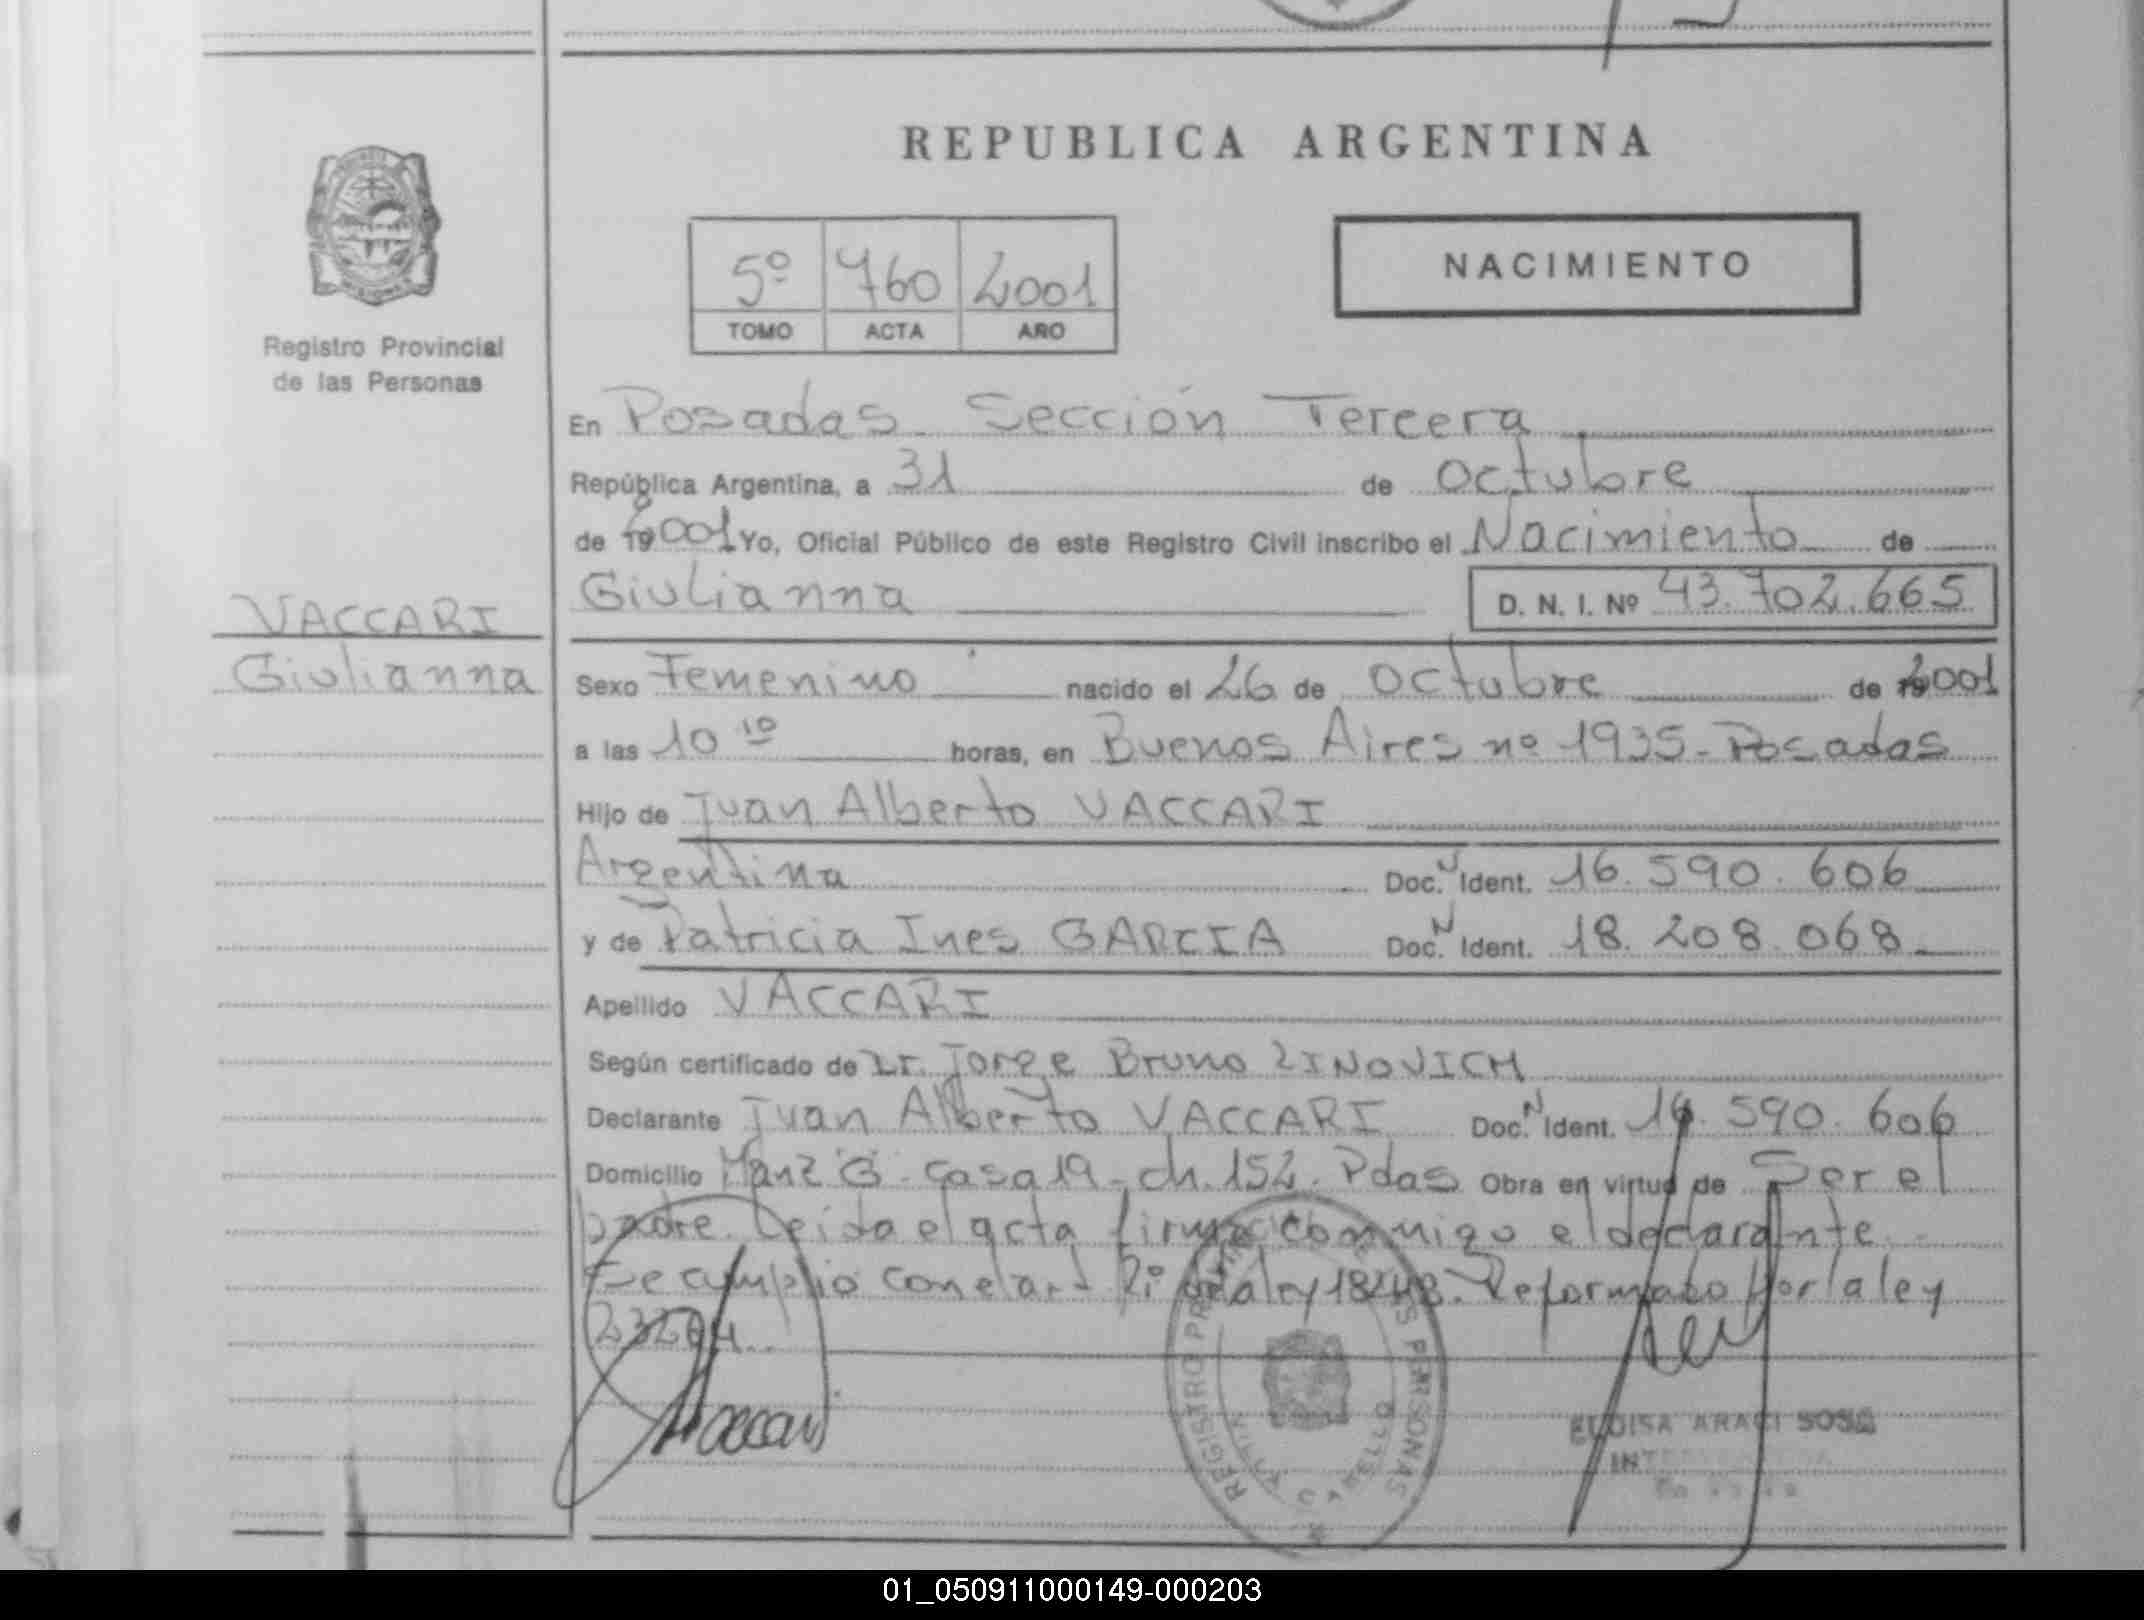 REPUBLICA ARGENTINA
5º 760 2001
TOMO ACTA AÑO
NACIMIENTO
Registro Provincial
de las Personas
En Posadas Sección Tercera
República Argentina, a 31 de Octubre
de 2001 Yo, Oficial Público de este Registro Civil inscribo el Nacimiento de
Giulianna D. N. I. Nº 43.702.665
VACCARI
Giulianna
Sexo Femenino nacido el 26 de Octubre de 2001
a las 10 10 horas, en Buenos Aires nº 1935 - Posadas
Hijo de Juan Alberto VACCARI
Argentina Doc. N Ident. 16.590.606
y de Patricia Ines GARCIA Doc. N Ident. 18.208.068
Apellido VACCARI
Según certificado de Dr. Jorge Bruno ZINOVICH
Declarante Juan Alberto VACCARI Doc. N Ident. 16.590.606
Domicilio Manz G - casa 19 - ch. 152. Pdas Obra en virtud de Ser el
padre. Leida el acta firma conmigo el declarante.
Se cumplio con el art 2º de la ley 18248. Reformado por la ley
23264.
Vaccari
REGISTRO PROVINCIAL DE LAS PERSONAS
ELOISA ARACI SOSA
01_050911000149-000203